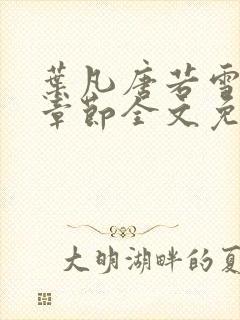 葉凡唐若雪
章節全文免
大明湖畔的夏